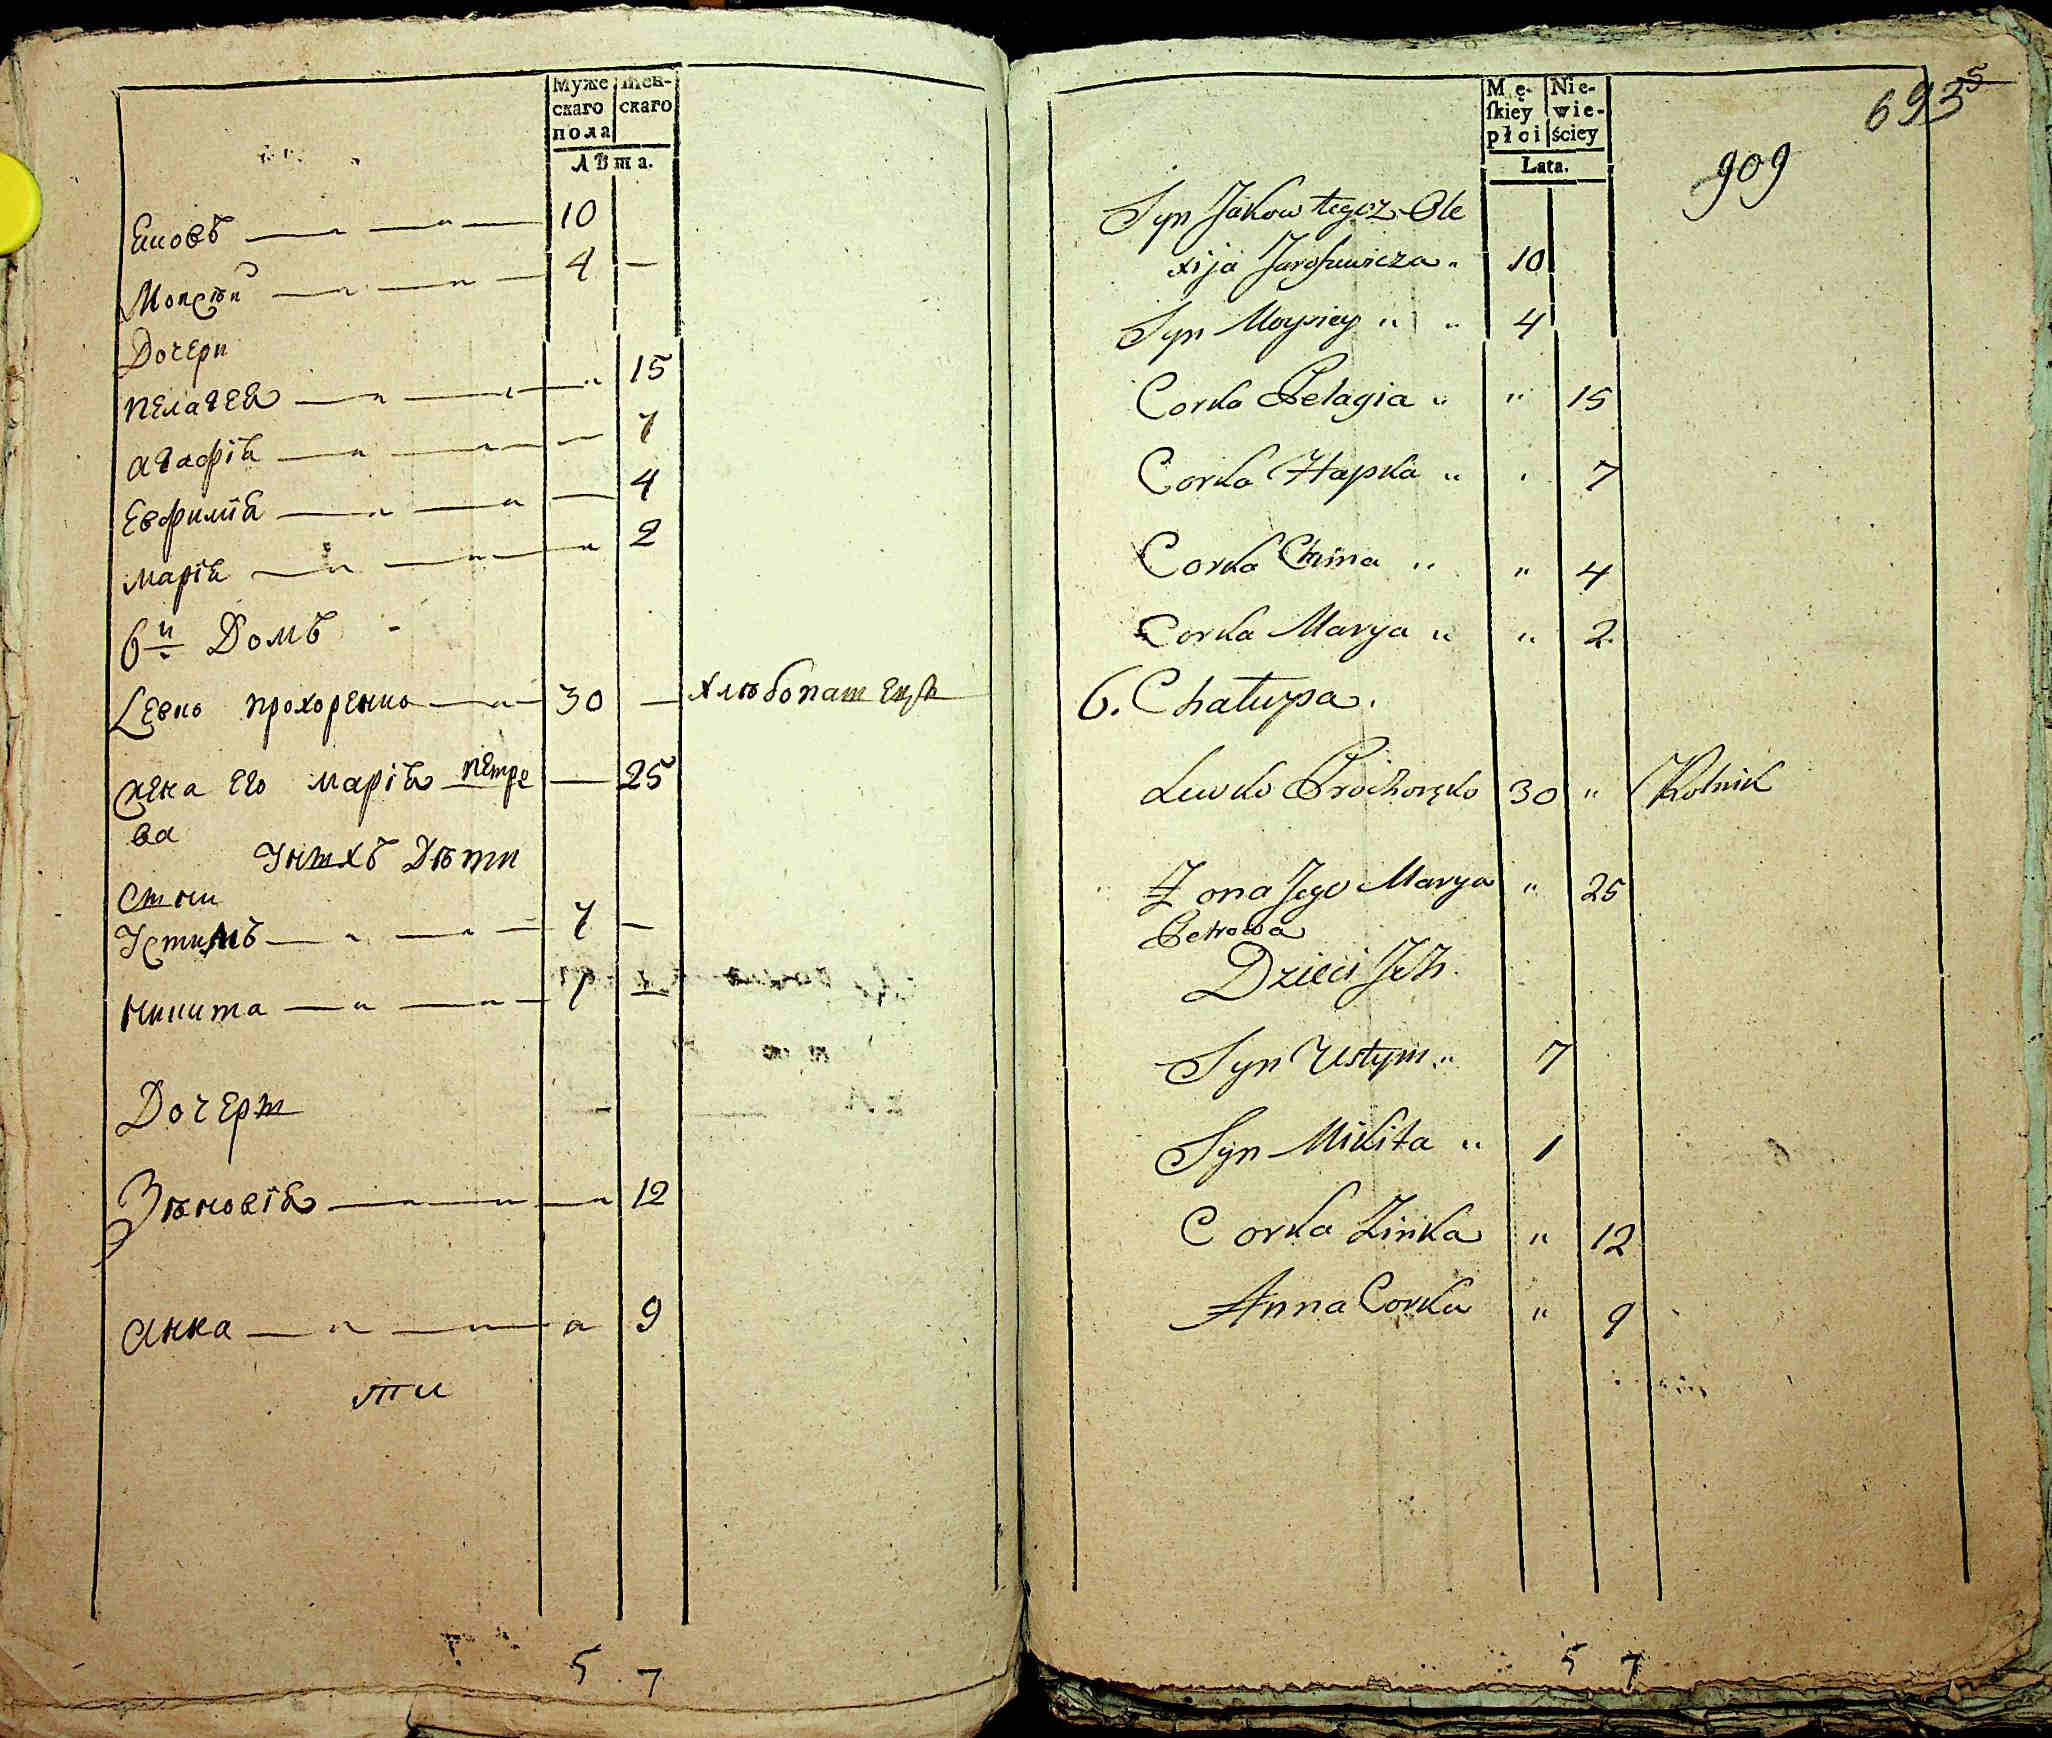 Муже Жен-
скаго скаго
пола
ЛѢта.
Ековъ 10
Моисѣй 4 —
Дочери
пелагея 15
агафія — 7
Евфимія — 4
марія 2
6й Домъ
Левко прохоренко 30 — хлѣбопашецъ
жена его марія петро — 25
ва
У нихъ Дѣти
Сыны
Устимъ 7 —
никита 1 —
Дочери
Зѣновія 12
анна 9
5 7
693 5
909
Mę- Nie-
ſkiey wie-
płci ściey
Lata.
Syn Jakow tegoz Ole
xija Jaroszewicza „ 10
Syn Moysiey „ „ 4
Corka Pelagia „ „ 15
Corka Hapka „ „ 7
Corka Chima „ „ 4
Corka Marya „ „ 2
6. Chałupa.
Lewko Prochoręko 30 „ Rolnik
Zona Jego Marya „ 25
Petrowa
Dzieci Jch
Syn Ustym „ 7
Syn Mikita „ 1
Corka Zinka „ 12
Anna Corka „ 9
5 7